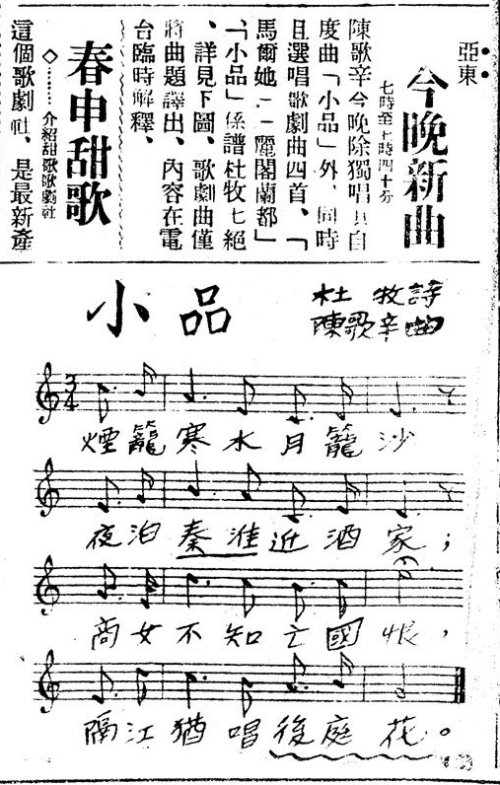 亞東
今晚新曲
七時至七時四十分
陳歌辛今晚除獨唱其自
度曲「小品」外、同時
且選唱歌劇曲四首、「
馬爾她」「麗閣蘭都」
、「小品」係譜杜牧七絕
、詳見下圖、歌劇曲僅
將曲題譯出、內容在電
台臨時解釋、
春申甜歌
◇……介紹甜歌歌劇社
這個歌劇社、是最新產
小品
杜牧詩
陳歌辛曲
3/4
煙籠寒水月籠沙
夜泊秦淮近酒家；
商女不知亡國恨，
隔江猶唱後庭花。